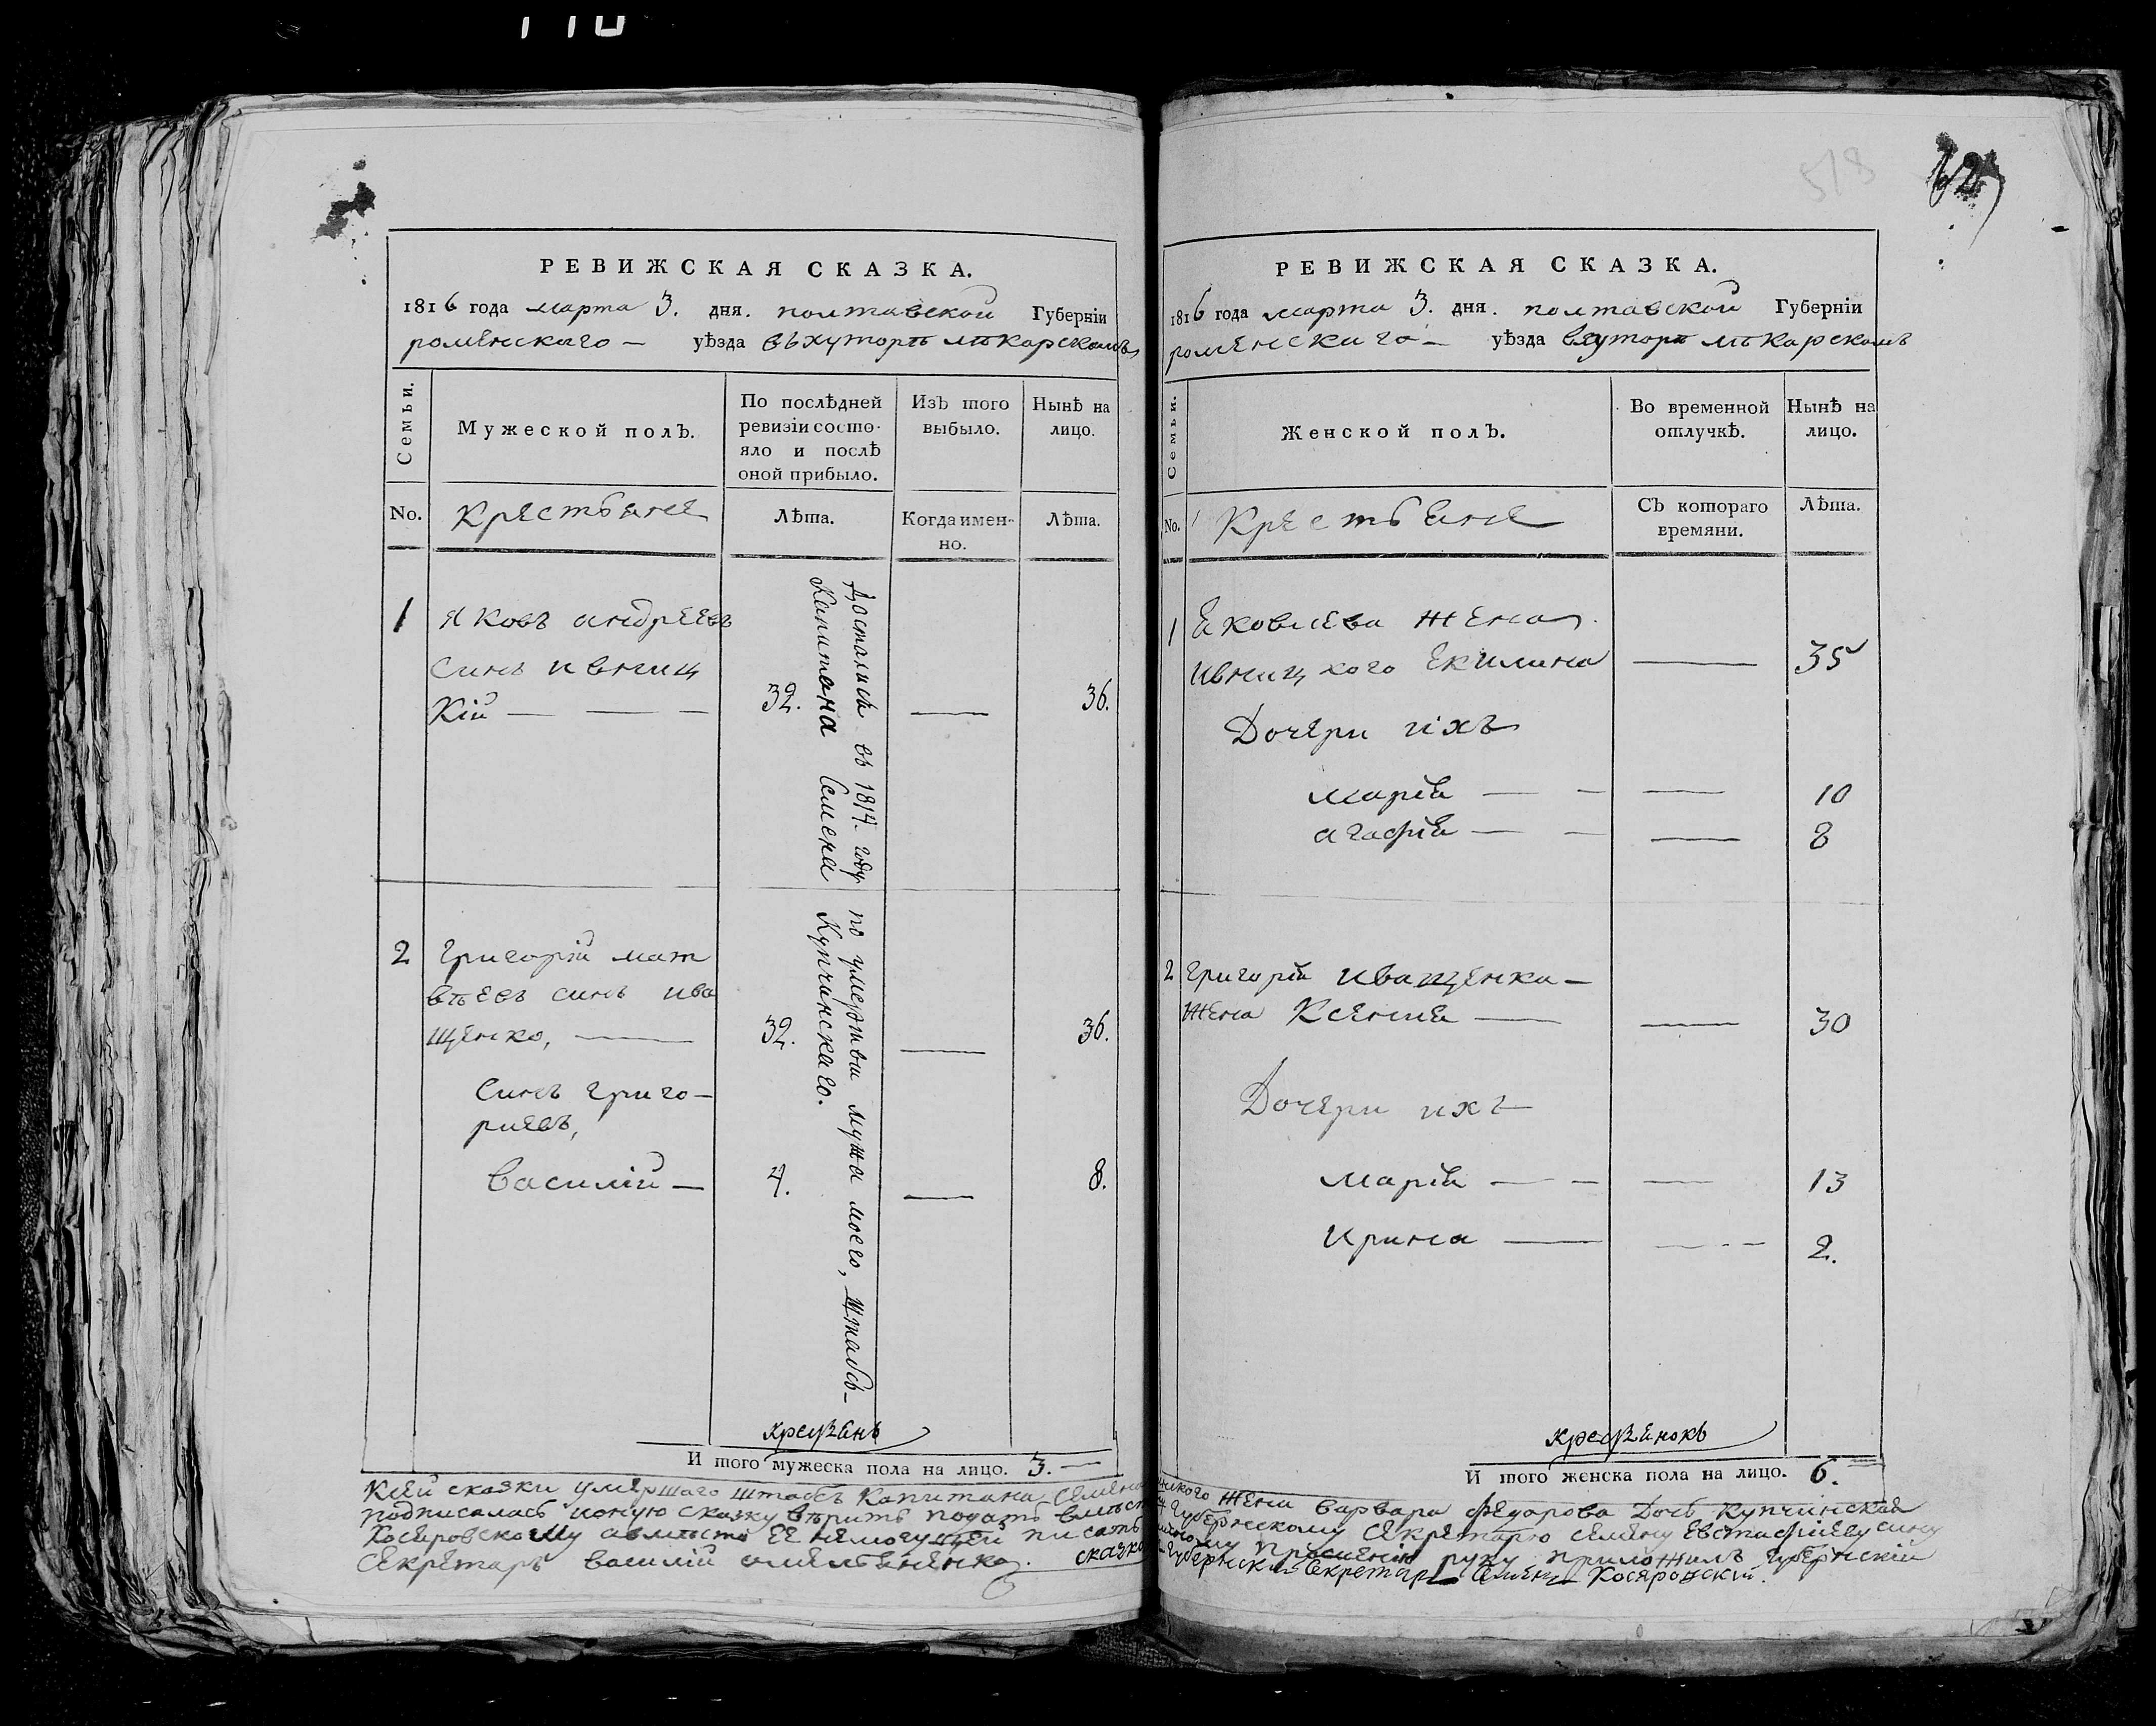 РЕВИЖСКАЯ СКАЗКА.
1816 года марта 3. дня. полтавской Губерніи
роменскаго уѣзда въ хуторѣ лѣкарскомъ
Семьи.
Мужеской полъ.
По послѣдней ревизіи состояло и послѣ оной прибыло.
Изъ того выбыло.
Нынѣ на лицо.
No.
Крестьяне
Лѣта.
Когда именно.
Лѣта.
1 Яковъ андреевъ
синъ ивниц
кій — — — 32. — 36.
2 Григорій мат
вѣевъ синъ ива
щенко, — 32. — 36.
Синъ григо-
риевъ,
Василій — 4. — 8.
Достались въ 1814. году по умертвіи мужа моего, штабсъ-
Капитана Семена Купчинскаго.
крестьянъ
И того мужеска пола на лицо. 3. —
518
РЕВИЖСКАЯ СКАЗКА.
1816 года марта 3. дня. полтавской Губерніи
роменскаго — уѣзда вхуторѣ лѣкарскомъ
Семьи.
Женской полъ.
Во временной отлучкѣ.
Нынѣ на лицо.
No.
Крестьяне
Съ котораго времяни.
Лѣта.
1 Яковлева жена
ивницкого Екилина — 35
Дочери ихъ
марія — — — 10
агафія — — — 8
2 григорія иващенка —
жена Ксения — — 30
Дочери ихъ
марія — — — 13
ирина — — 2.
крестьянокъ
И того женска пола на лицо. 6.
Ксей сказки умершаго штабсъ капитана Семена Купчинского жена варвара федорова дочь купчинская
подписалась ионую сказку вѣритъ подать губернскому секретарю семену евстафиеву сину
Косяровскому авмѣсто ее немогущей писать прошенію руку приложилъ губернскій
секретарь василій омельяненко. сказку губернскій секретарь Семенъ Косяровскій.